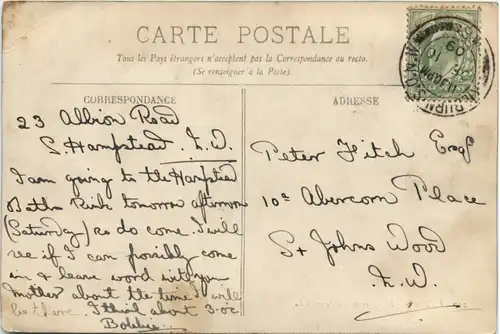 CARTE POSTALE
Tous les Pays étrangers n'acceptent pas la Correspondance au recto.
(Se renseigner à la Poste).
CORRESPONDANCE
23 Albion Road
S. Hampstead N.W.
I am going to the Hampstead
Baths Rink tomorrow afternoon
(Saturday) so do come. I will
see if I can possibly come
in & leave word with your
Mother about the time I will
be there. I think about 3.oc
ADRESSE
Peter Fitch Esq
10a Abercorn Place
St Johns Wood
N.W.